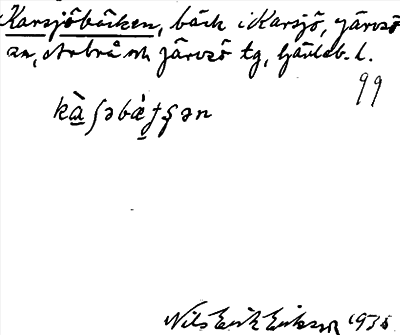 Karsjöbäcken, bäck i Karsjö, Järvsö
sn, Arbrå och Järvsö tg, Gävleb. l.
99
kàʃəbàtʂən
Nils Erik Eriksson 1935